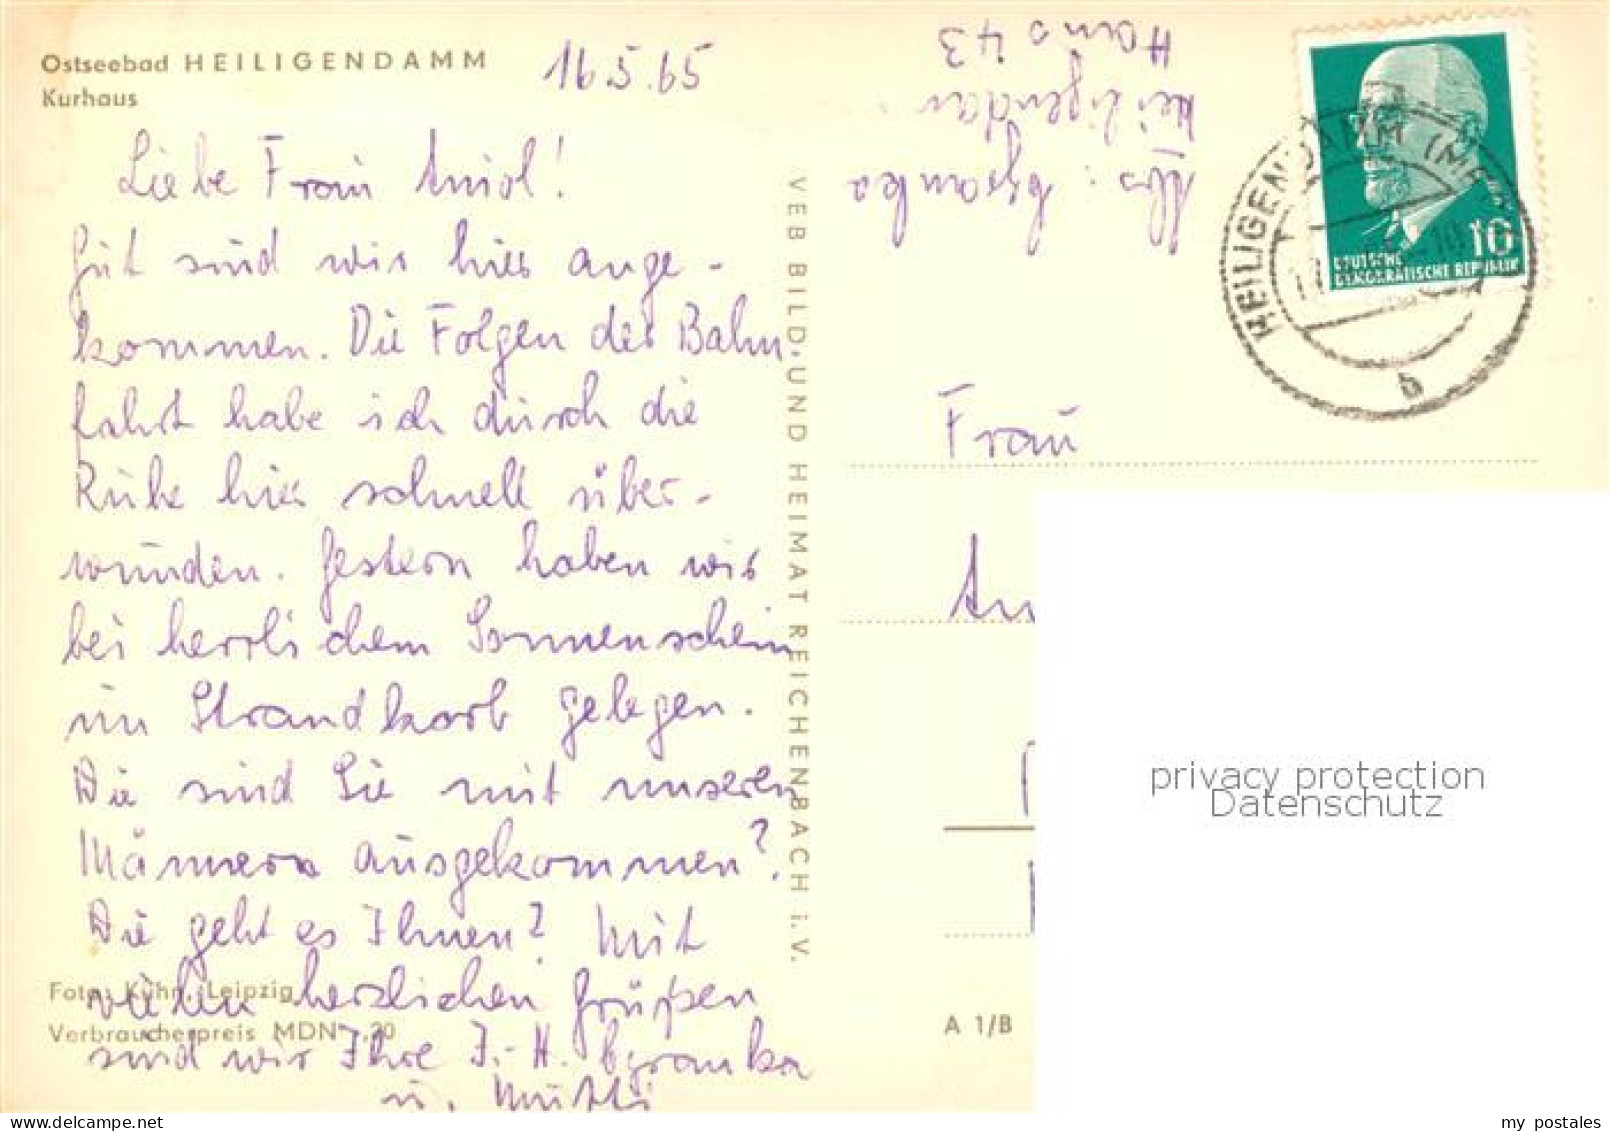 Ostseebad HEILIGENDAMM
Kurhaus
16.5.65
Liebe Frau
Gut sind wir hier ange-
kommen. Die Folgen der Bahn-
fahrt habe ich durch die
Ruhe hier schnell über-
wunden. Gestern haben wir
bei herrlichem Sonnenschein
im Strandkorb gelegen.
Wie sind Sie mit unseren
Männern ausgekommen?
Wie geht es Ihnen? Mit
vielen herzlichen Grüßen
sind wir Ihre I.-H.
u. Mutti
Foto: Kühn, Leipzig
Verbraucherpreis MDN -,20
VEB BILD-UND HEIMAT REICHENBACH i. V.
Abs.:
Heiligendam
Haus 43
HEILIGENDAMM (MECKL)
10
DEUTSCHE
DEMOKRATISCHE REPUBLIK
b
Frau
A 1/B
privacy protection
Datenschutz
my postales